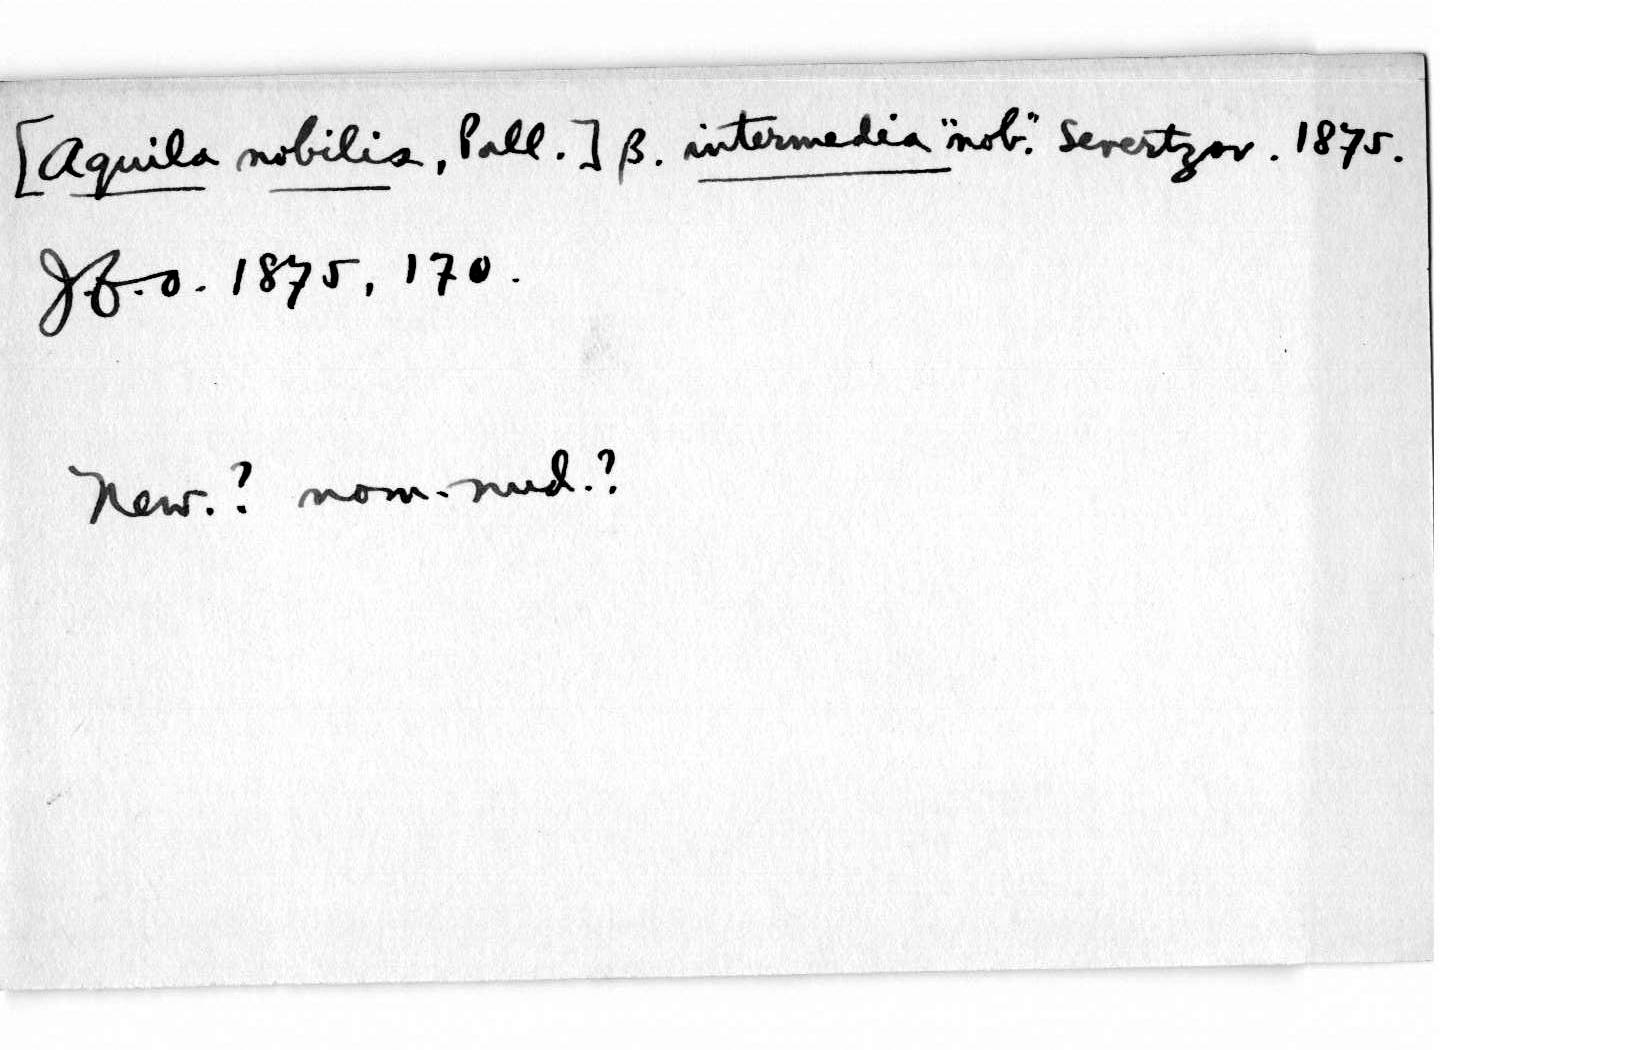 [Aquila nobilis, Pall.] β. intermedia "nob." Severtzov. 1875.
J.f.o. 1875, 170.
New.? nom. nud.?